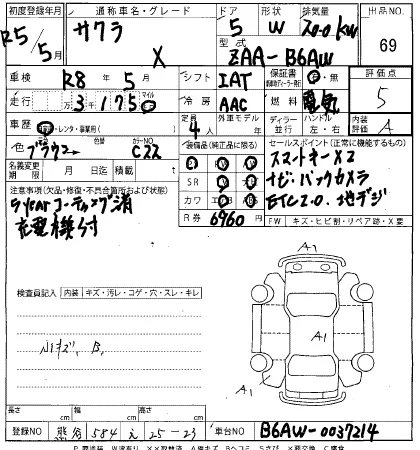 初度登録年月 通称車名・グレード ドア 形状 排気量 出品NO.
R5/5月 サクラ X 5 W 20.0 kW 69
型式
ZAA-B6AW
車検 R8年5月 シフト IAT 保証書 有・無 燃料 電気 評価点 5
走行 3千175 マイル 冷房 AAC
車歴 レンタ・事業用 定員 4人 外車モデル ディーラー 並行 ハンドル 左・右 内装 A
色 ブラウン カラーNO C22 装備品(純正品に限る) セールスポイント(正常に機能するもの)
名義変更期限 月 日
スマートキーX2
SR
ナビ・バックカメラ
カワ
ETC2.0. 地デジ
R券 6960
FW キズ・ヒビ割・リペア跡・X要
注意事項(欠品・修復・不具合箇所および状態)
5yearコーティング済
充電機付
検査員記入 内装 キズ・汚レ・コゲ・穴・スレ・キレ
小キズ, B,
A1
A1
A1
長さ cm 幅 cm 高さ cm
登録NO 熊谷 584 え 25-23 車台NO B6AW-0037214